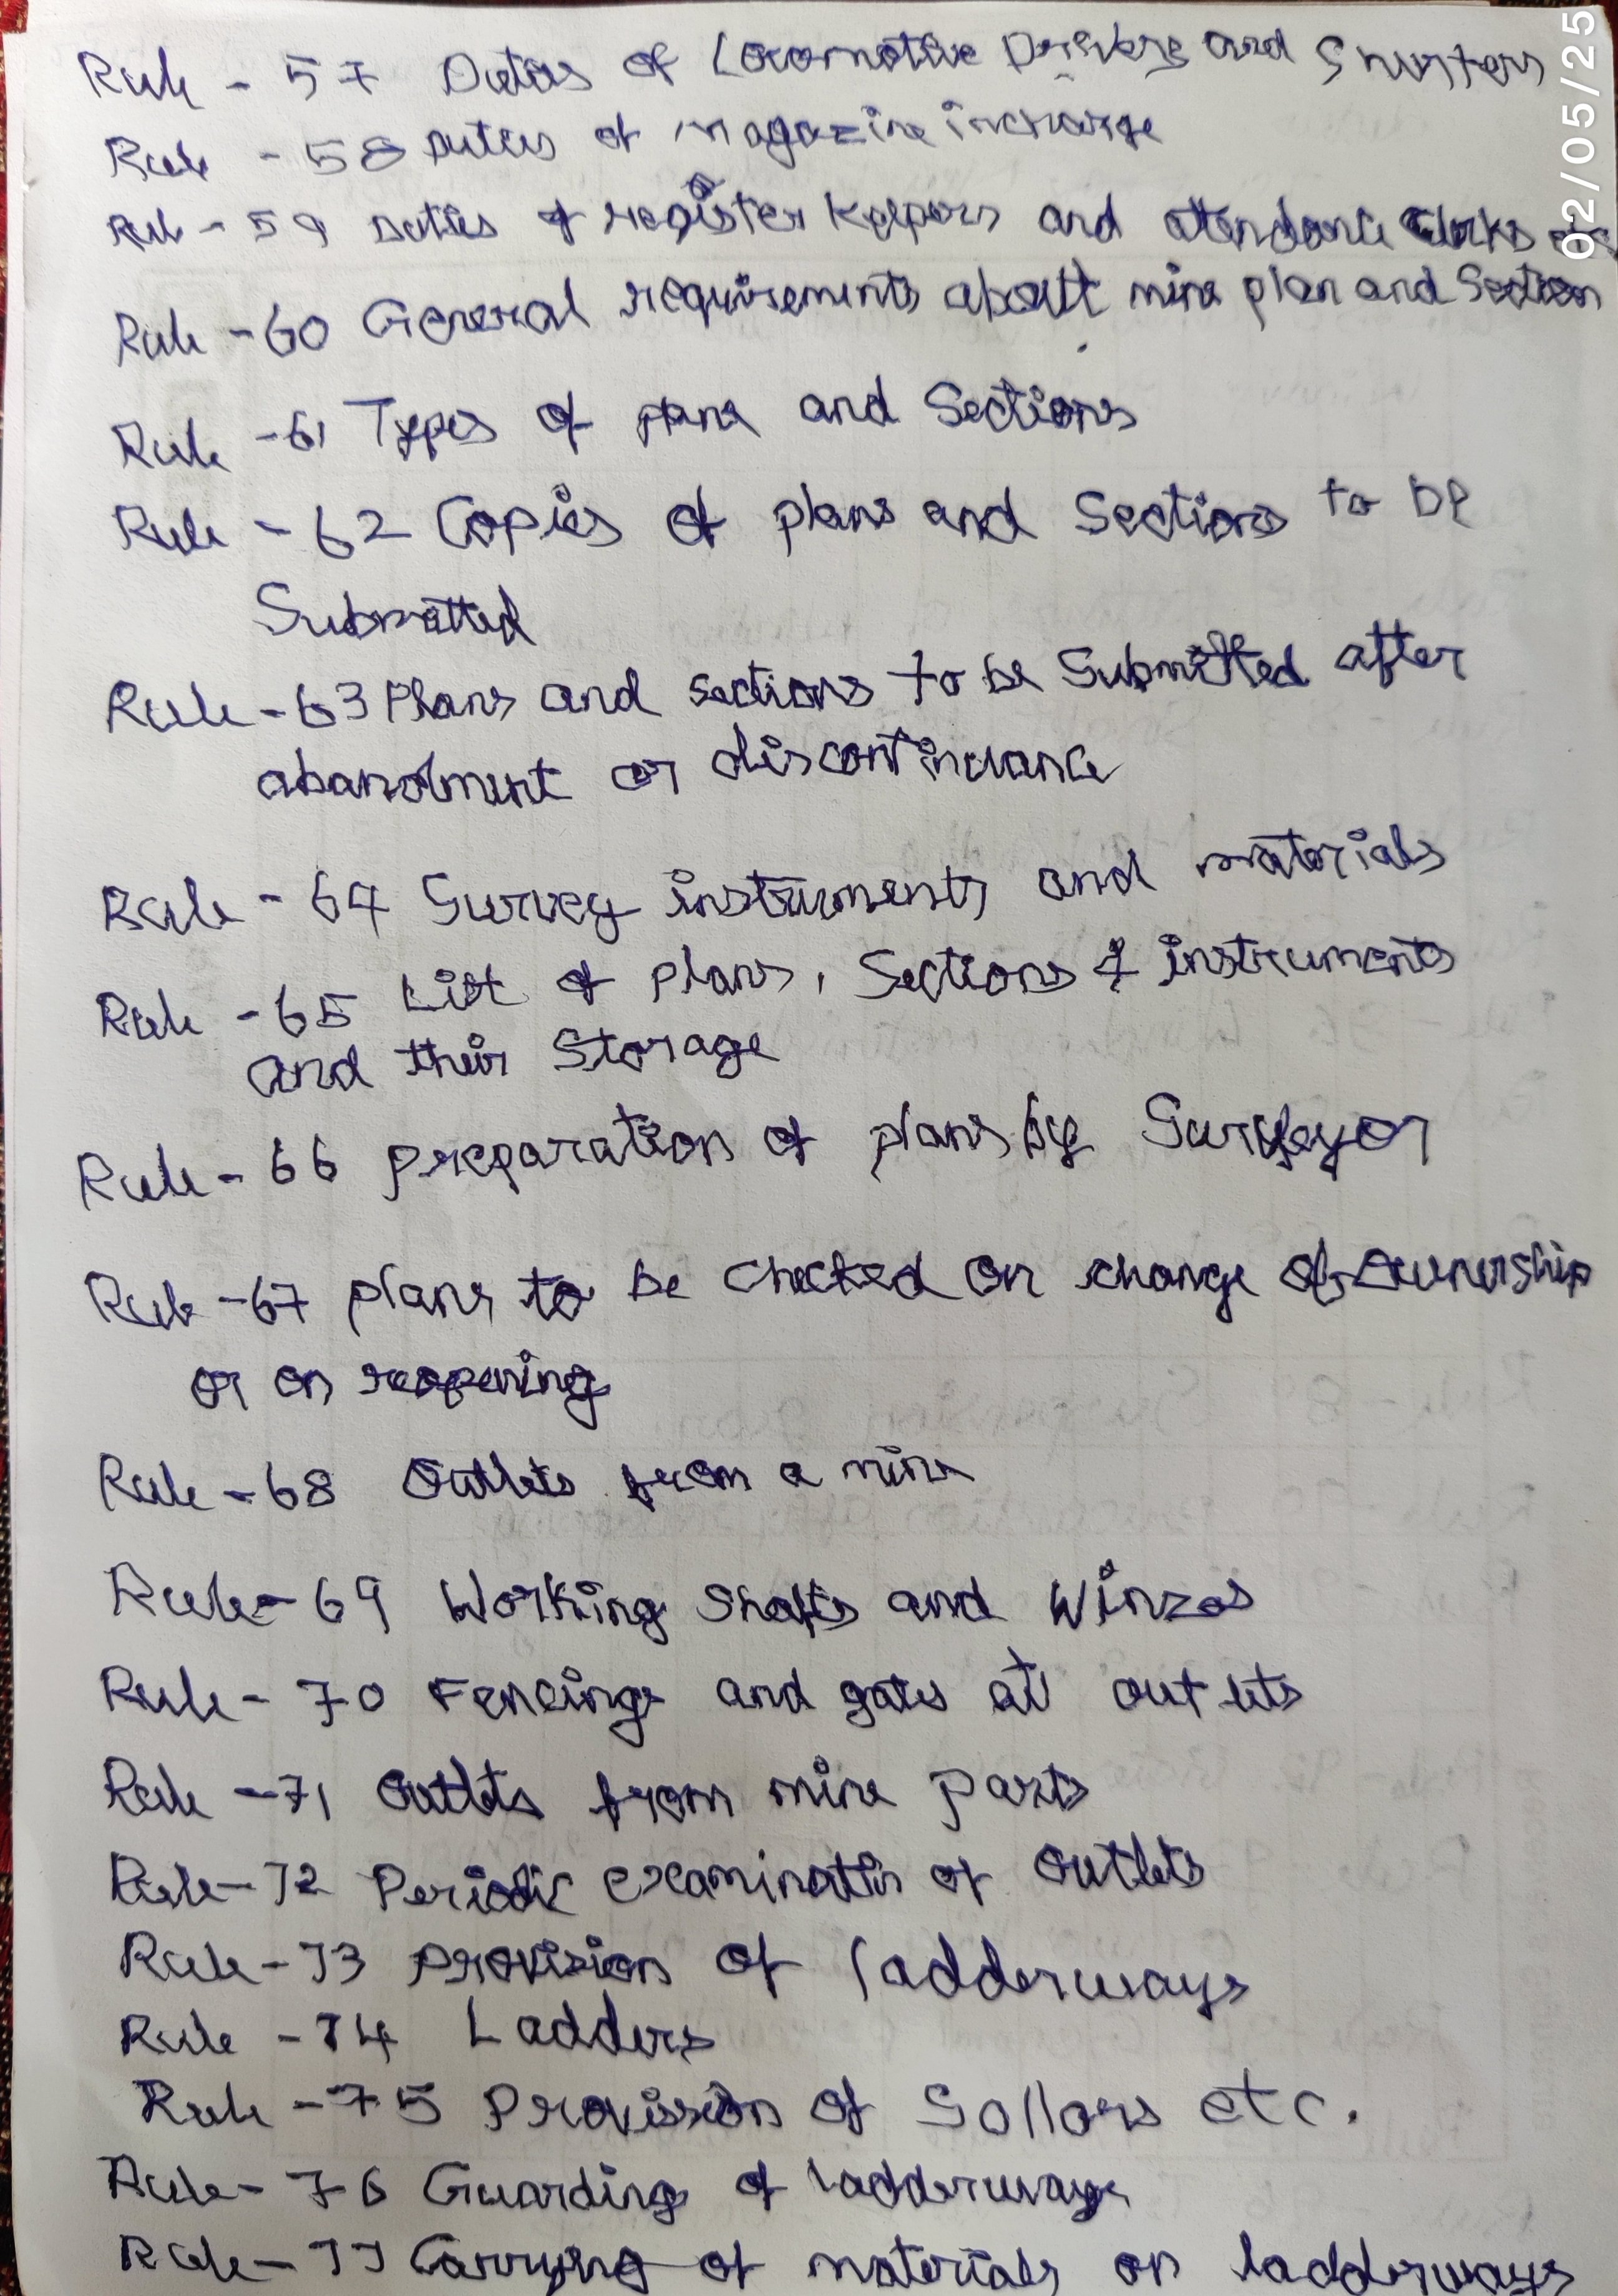 Rule - 57 Duties of Locomotive Drivers and Shunters
Rule - 58 Duties of magazine incharge
Rule - 59 Duties of register keepers and attendance clerks
Rule - 60 General requirements about mine plan and Section
Rule - 61 Types of plans and Sections
Rule - 62 Copies of plans and Sections to be
Submitted
Rule - 63 Plans and sections to be Submitted after
abandment or discontinuance
Rule - 64 Survey instruments and materials
Rule - 65 List of plans, Sections & instruments
and their Storage
Rule - 66 preparation of plans by Surveyor
Rule - 67 plans to be checked on change of ownership
or on reopening
Rule - 68 Outlets from a mine
Rule - 69 Working shafts and Winzes
Rule - 70 Fencings and gates at outlets
Rule - 71 Outlets from mine parts
Rule - 72 Periodic examination of outlets
Rule - 73 Provision of ladderways
Rule - 74 Ladders
Rule - 75 Provission of Sollars etc.
Rule - 76 Guarding of ladderways
Rule - 77 Carrying of materials on ladderways
02/05/25